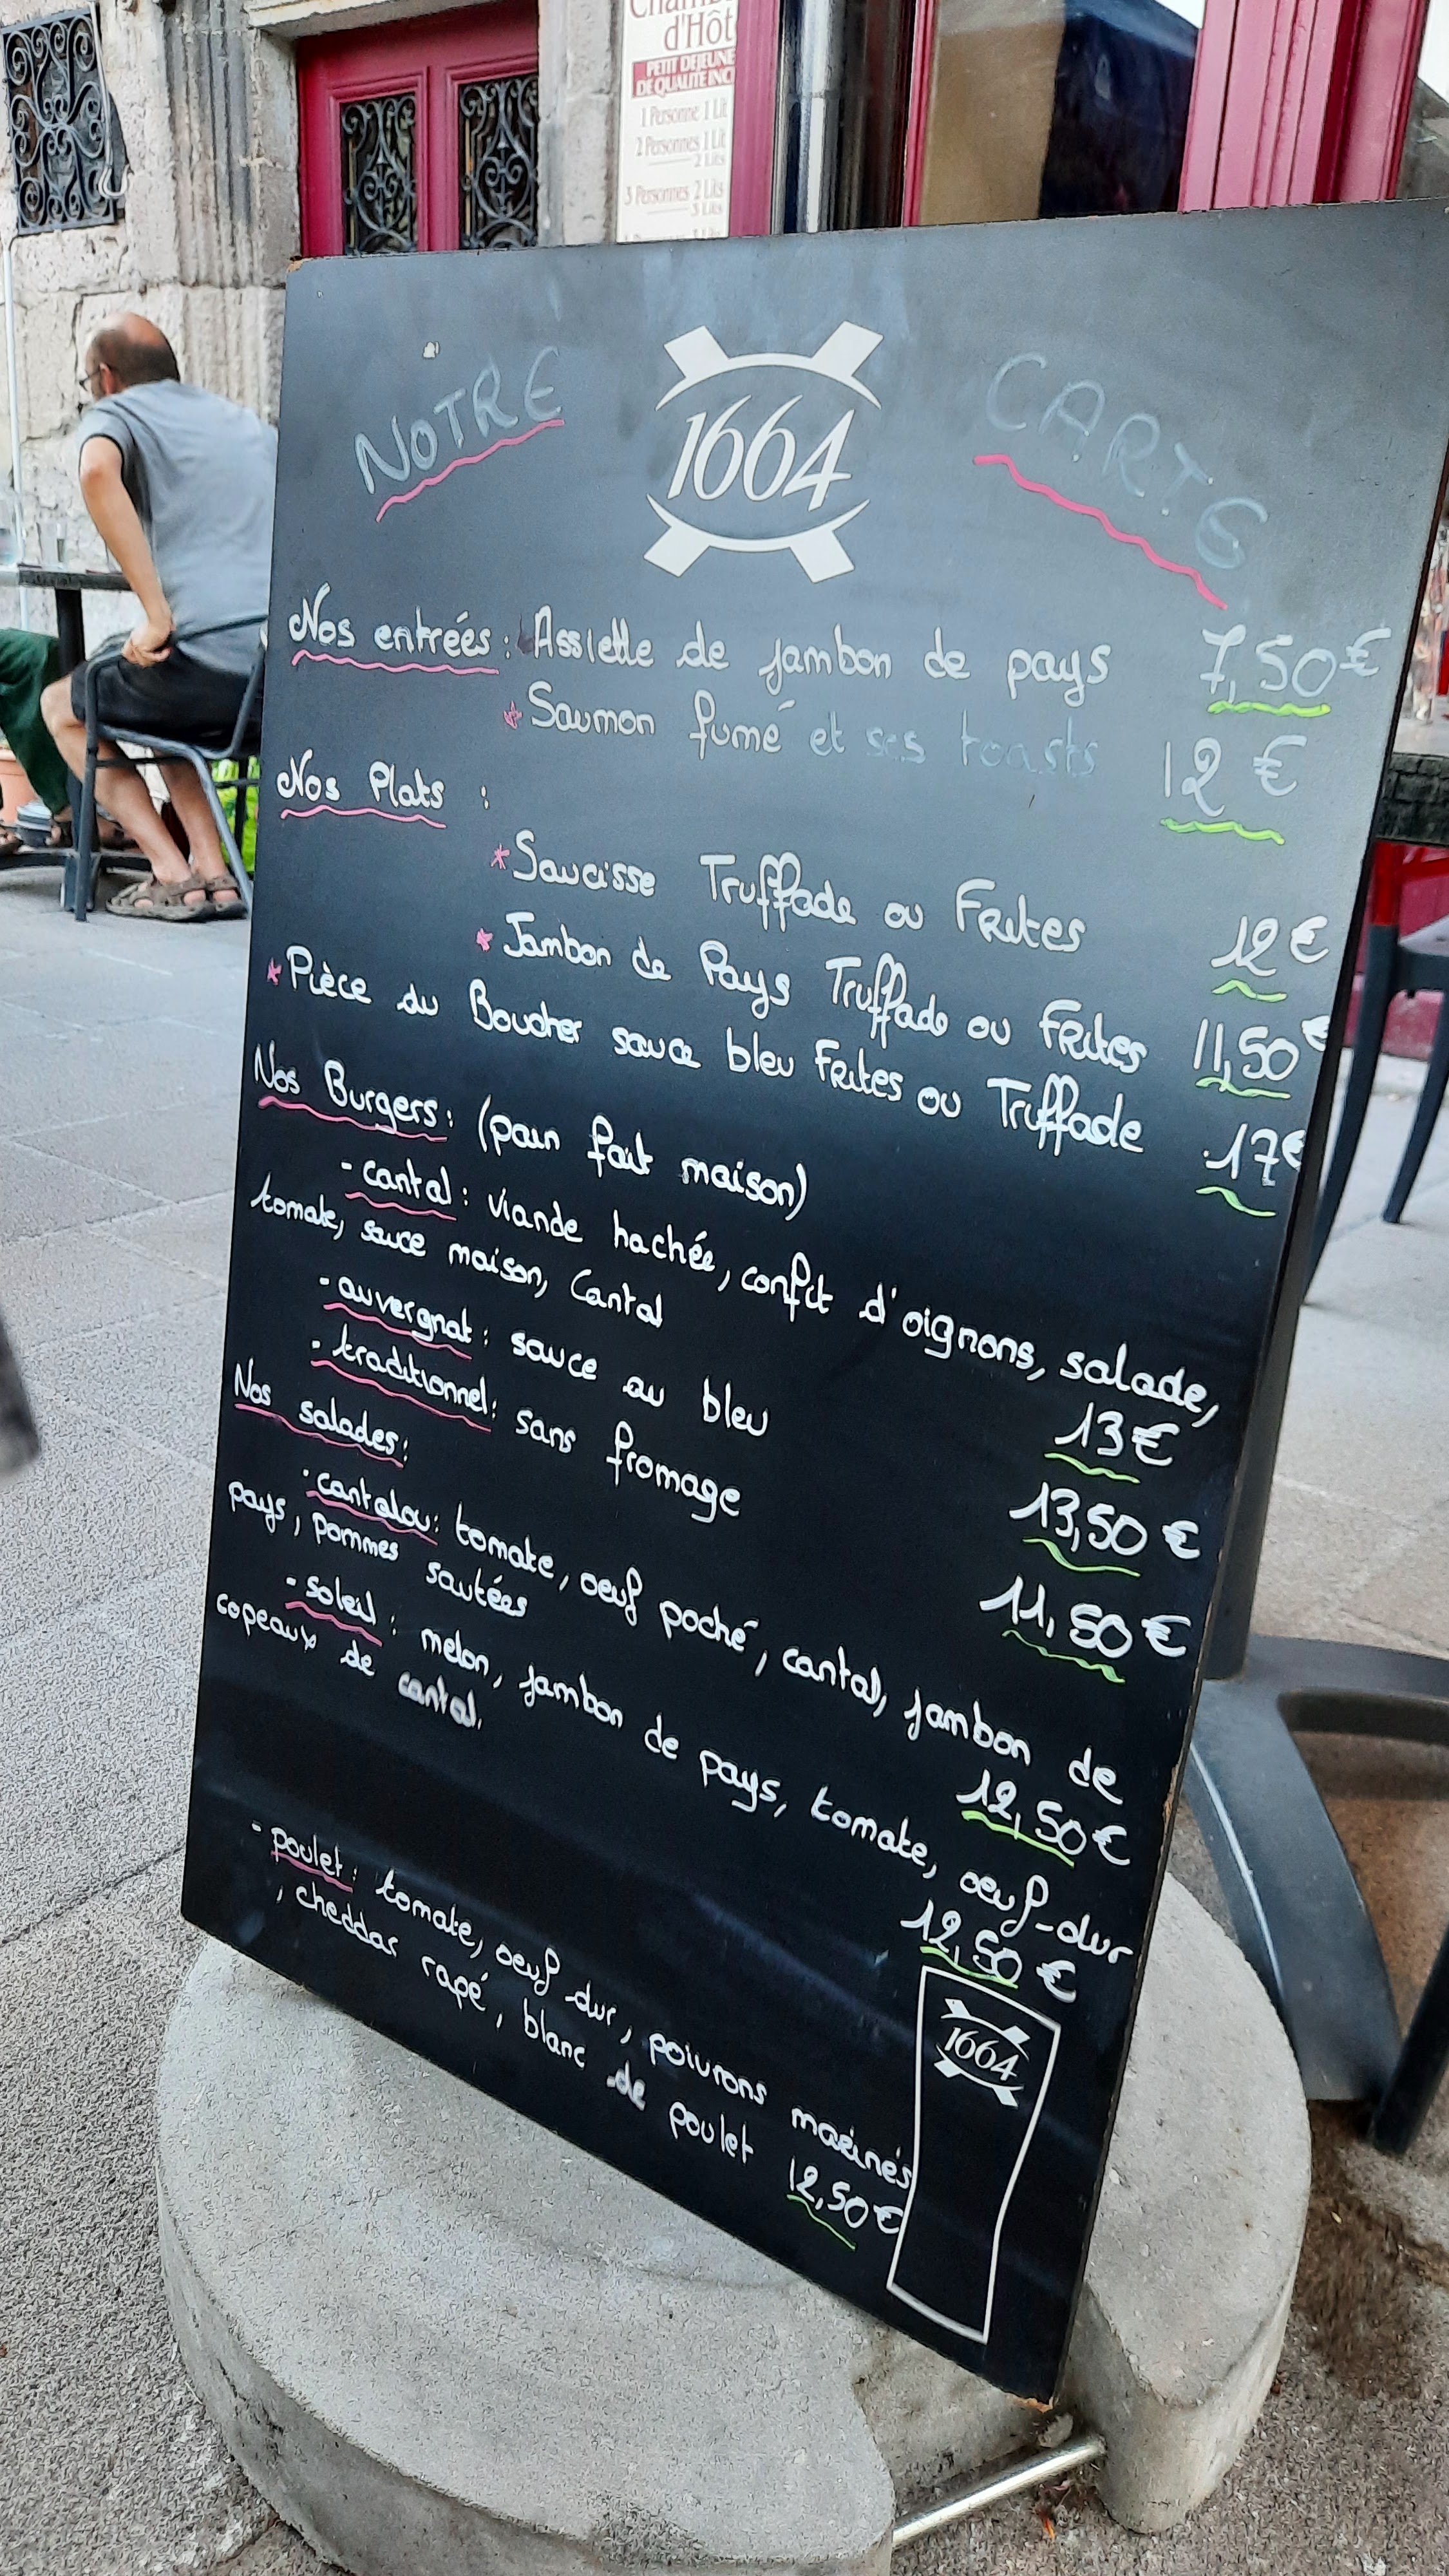 Chamb
d'Hôt
PETIT DEJEUNE
DE QUALITE INC
1 Personne 1 Lit
2 Personnes 1 Lit
2 Lits
3 Personnes 2 Lits
3 Lits
NOTRE 1664 CARTE
Nos entrées : Assiette de jambon de pays 7,50€
* Saumon fumé et ses toasts 12 €
Nos Plats :
* Saucisse Truffade ou Frites 12€
* Jambon de Pays Truffade ou Frites 11,50€
* Pièce du Boucher sauce bleu Frites ou Truffade 17€
Nos Burgers : (pain fait maison)
- cantal : viande hachée, confit d'oignons, salade,
tomate, sauce maison, Cantal 13€
- auvergnat : sauce au bleu 13,50 €
- traditionnel : sans fromage 11,50 €
Nos salades :
- cantalou : tomate, oeuf poché, cantal, jambon de
pays, pommes sautées 12,50€
- soleil : melon, jambon de pays, tomate, oeuf-dur
copeaux de cantal. 12,50 €
- poulet : tomate, oeuf-dur, poivrons marinés
, cheddar rapé, blanc de poulet 12,50€
1664